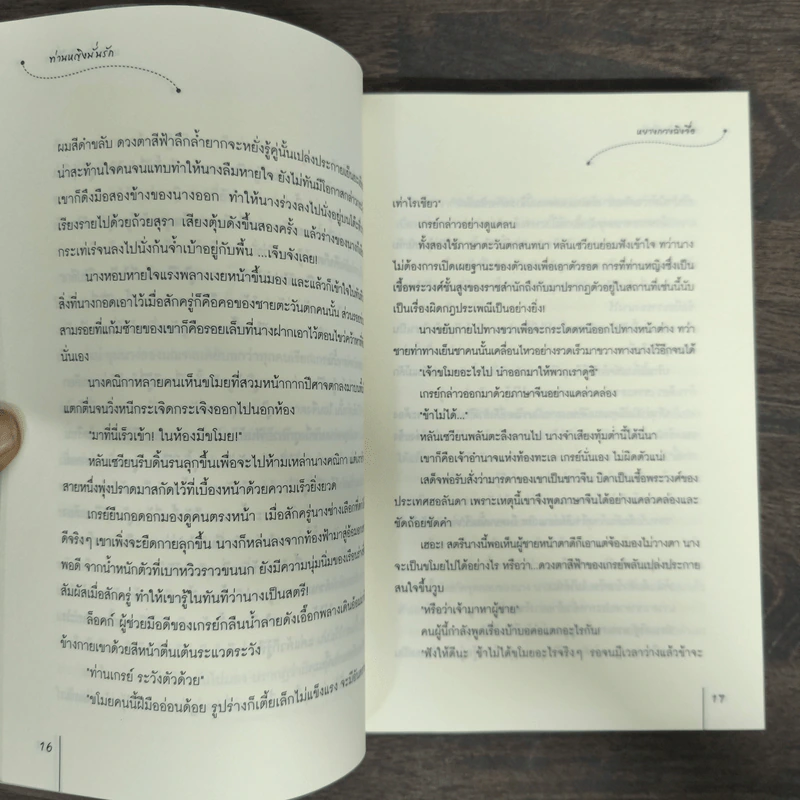 ท่านหญิงมั่นรัก
ผมสีดำขลับ ดวงตาสีฟ้าลึกล้ำยากจะหยั่งรู้คู่นั้นเปล่งประกายเย็น
น่าสะท้านใจคนจนแทบทำให้นางลืมหายใจ ยังไม่ทันมีโอกาส
เขาก็ดึงมือสองข้างของนางออก ทำให้นางร่วงลงไปนั่งอยู่บน
เรียงรายไปด้วยถ้วยสุรา เสียงตุ้บดังขึ้นสองครั้ง แล้วร่างของนางก็
กระเท่เร่จนลงไปนั่งก้นจ้ำเบ้าอยู่กับพื้น ...เจ็บจังเลย!
นางหอบหายใจแรงพลางเงยหน้าขึ้นมอง และแล้วก็เข้าใจใน
สิ่งที่นางกอดเอาไว้เมื่อสักครู่ก็คือคอของชายตะวันตกคนนั้น ส่วน
สามรอยที่แก้มซ้ายของเขาก็คือรอยเล็บที่นางฝากเอาไว้ตอนไขว่คว้า
นั่นเอง
นางคณิกาหลายคนเห็นขโมยที่สวมหน้ากากปีศาจตกลงมา
แตกตื่นจนวิ่งหนีกระเจิดกระเจิงออกไปนอกห้อง
"มาที่นี่เร็วเข้า! ในห้องมีขโมย!"
หลันเซวียนรีบดิ้นรนลุกขึ้นเพื่อจะไปห้ามเหล่านางคณิกา
สายหนึ่งพุ่งปราดมาสกัดไว้ที่เบื้องหน้าด้วยความเร็วยิ่งยวด
เกรย์ยืนกอดอกมองดูคนตรงหน้า เมื่อสักครู่นางช่างเลือกที่
ดีจริงๆ เขาเพิ่งจะยืดกายลุกขึ้น นางก็หล่นลงจากท้องฟ้ามาสู่อ้อม
พอดี จากน้ำหนักตัวที่เบาหวิวราวขนนก ยังมีความนุ่มนิ่มของเรือนร่าง
สัมผัสเมื่อสักครู่ ทำให้เขารู้ในทันทีว่านางเป็นสตรี!
ล็อคก์ ผู้ช่วยมือดีของเกรย์กลืนน้ำลายดังเอื้อกพลางเดิน
ข้างกายเขาด้วยสีหน้าตื่นเต้นระแวดระวัง
"ท่านเกรย์ ระวังตัวด้วย"
"ขโมยคนนี้ฝีมืออ่อนด้อย รูปร่างก็เตี้ยเล็กไม่แข็งแรง จะมี
16
หยางกวงฉิงจื่อ
เท่าไรเชียว"
เกรย์กล่าวอย่างดูแคลน
ทั้งสองใช้ภาษาตะวันตกสนทนา หลันเซวียนย่อมฟังเข้าใจ ทว่านาง
ไม่ต้องการเปิดเผยฐานะของตัวเองเพื่อเอาตัวรอด การที่ท่านหญิงซึ่งเป็น
เชื้อพระวงศ์ชั้นสูงของราชสำนักถึงกับมาปรากฏตัวอยู่ในสถานที่เช่นนี้นับ
เป็นเรื่องผิดกฎประเพณีเป็นอย่างยิ่ง!
นางขยับกายไปทางขวาเพื่อจะกระโดดหนีออกไปทางหน้าต่าง ทว่า
ชายท่าทางเย็นชาคนนั้นเคลื่อนไหวอย่างรวดเร็วมาขวางทางนางไว้อีกจนได้
"เจ้าขโมยอะไรไป นำออกมาให้พวกเราดูซิ"
เกรย์กล่าวออกมาด้วยภาษาจีนอย่างแคล่วคล่อง
"ข้าไม่ได้..."
หลันเซวียนพลันตะลึงลานไป นางจำเสียงทุ้มต่ำนี้ได้นี่นา
เขาก็คือเจ้าอำนาจแห่งท้องทะเล เกรย์นั่นเอง ไม่ผิดตัวแน่!
เสด็จพ่อรับสั่งว่ามารดาของเขาเป็นชาวจีน บิดาเป็นเชื้อพระวงศ์ของ
ประเทศฮอลันดา เพราะเหตุนี้เขาจึงพูดภาษาจีนได้อย่างแคล่วคล่องและ
ชัดถ้อยชัดคำ
เฮอะ! สตรีนางนี้พอเห็นผู้ชายหน้าตาดีก็เอาแต่จ้องมองไม่วางตา นาง
จะเป็นขโมยไปได้อย่างไร หรือว่า...ดวงตาสีฟ้าของเกรย์พลันเปล่งประกาย
สนใจขึ้นวูบ
"หรือว่าเจ้ามาหาผู้ชาย"
คนผู้นี้กำลังพูดเรื่องบ้าบอคอแตกอะไรกัน!
"ฟังให้ดีนะ ข้าไม่ได้ขโมยอะไรจริงๆ รอจนมีเวลาว่างแล้วข้าจะ
17